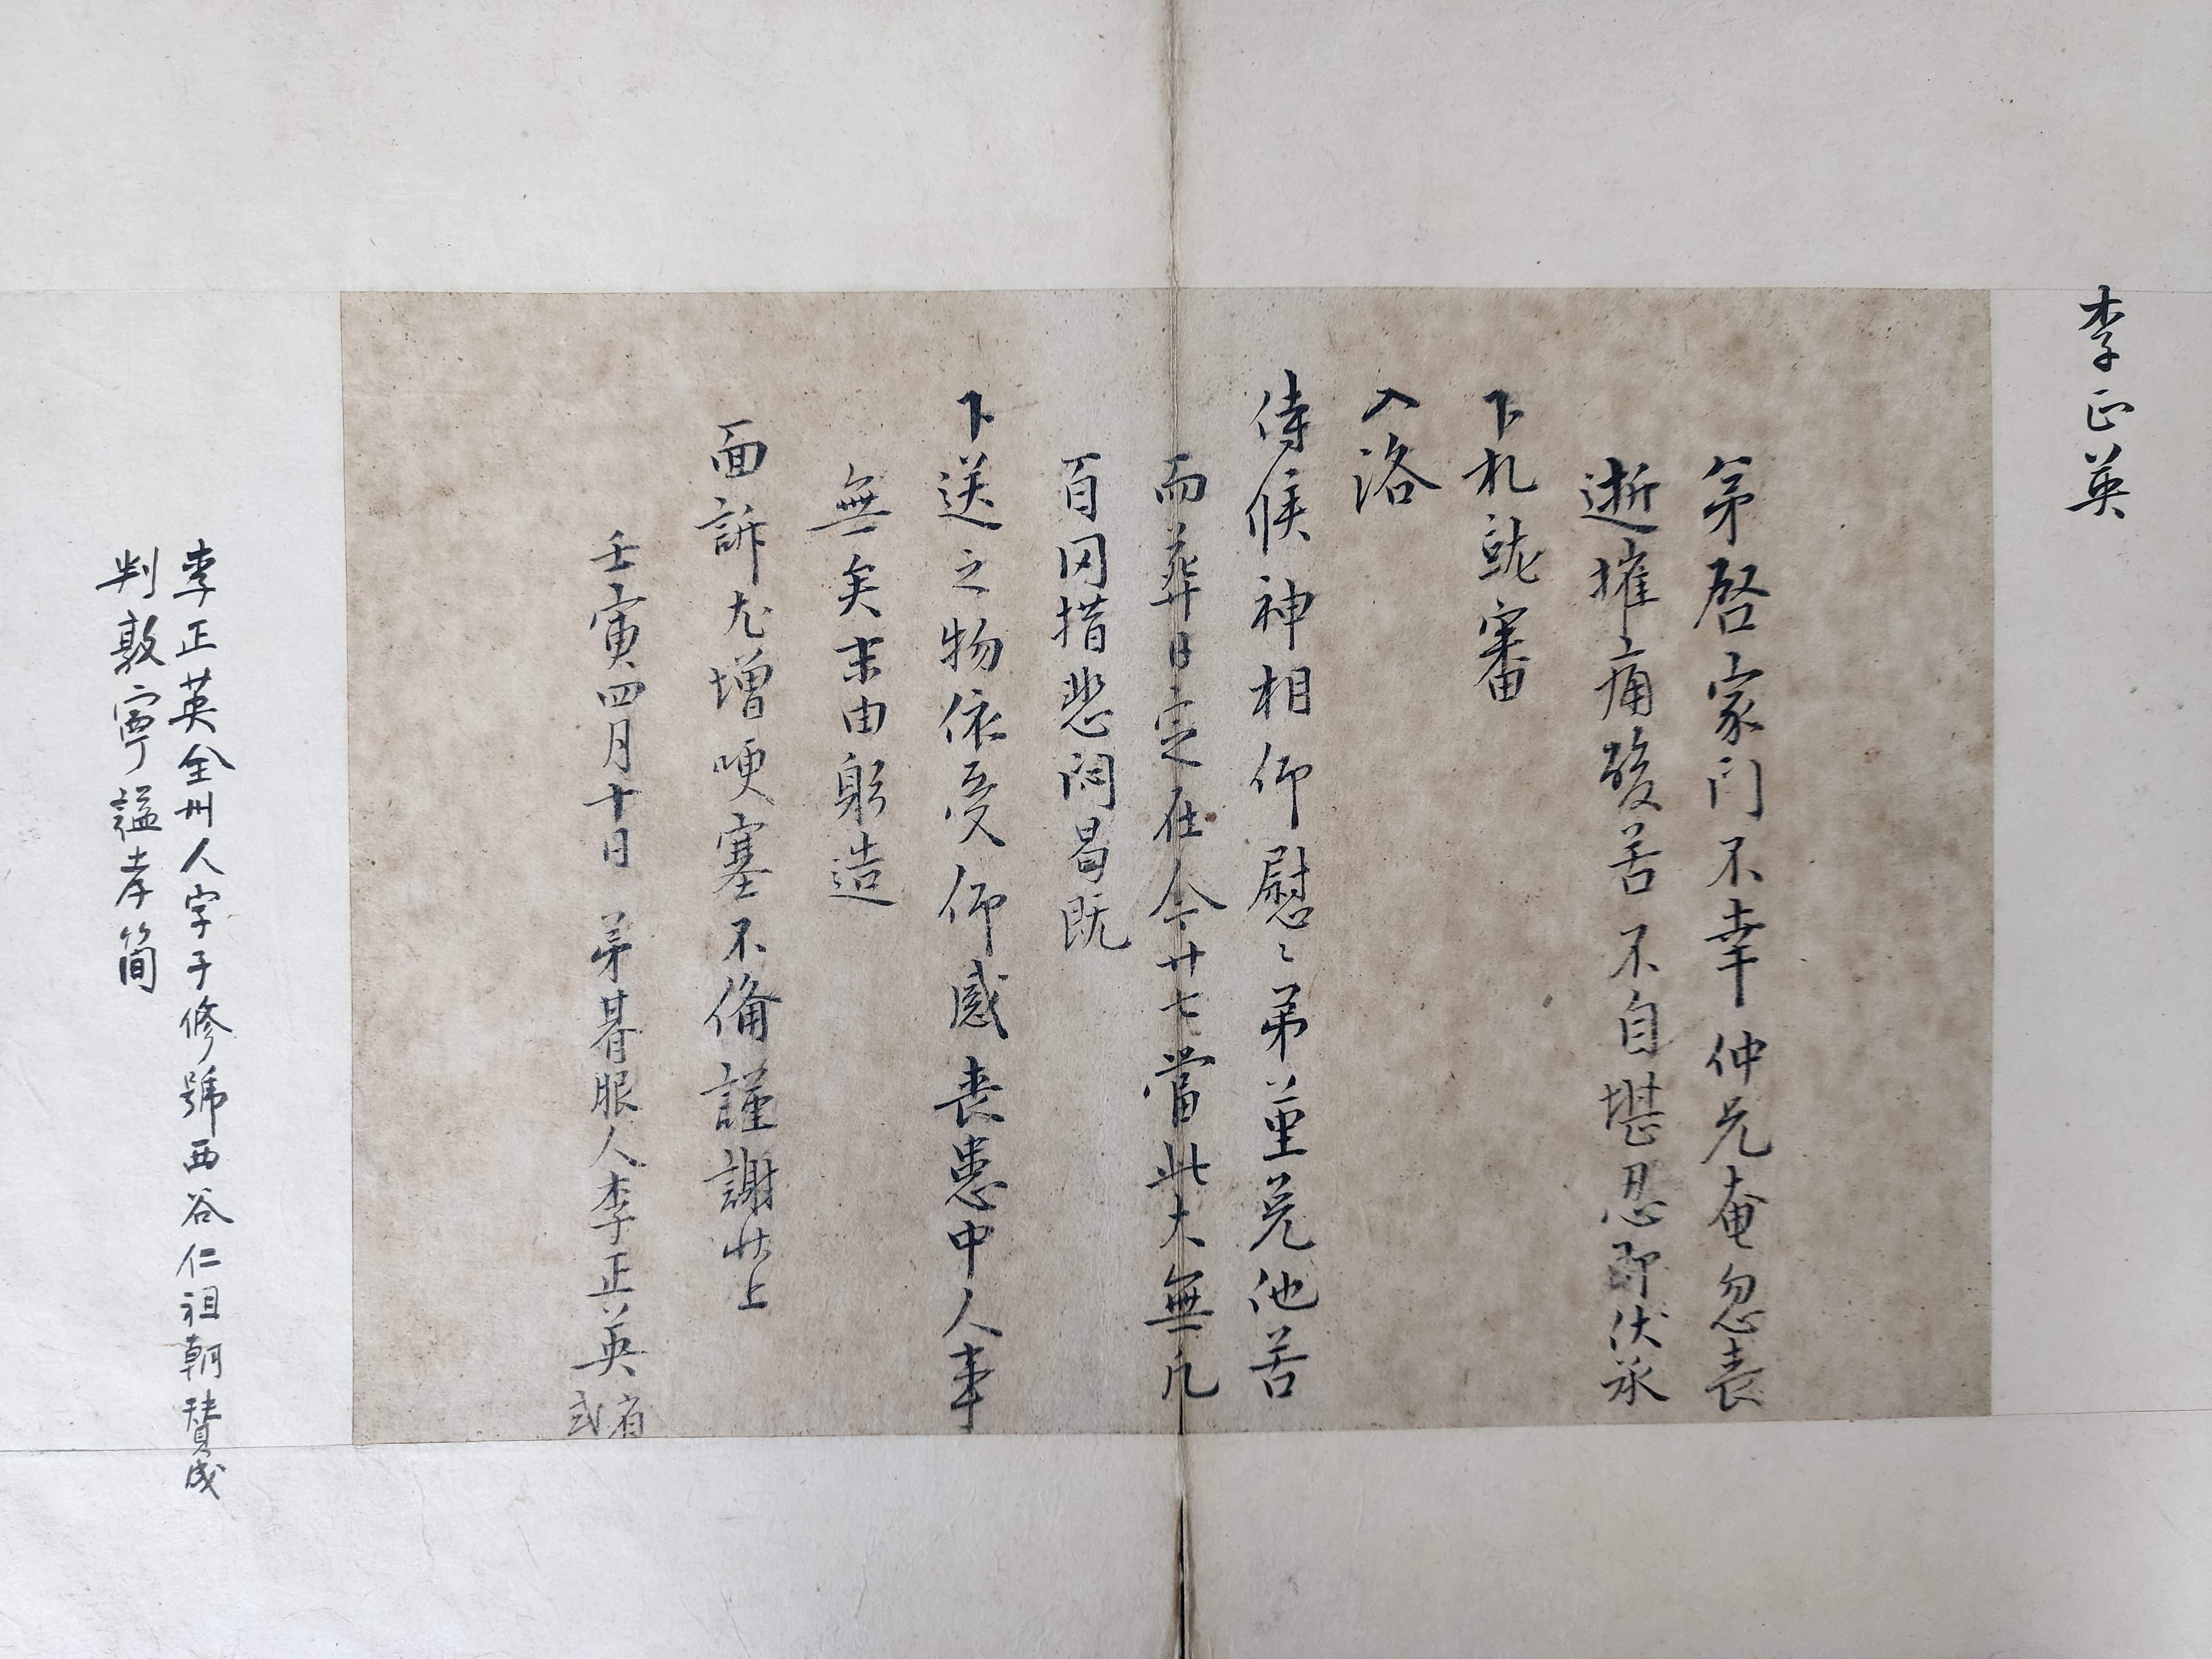 李正英
弟啓家門不幸仲兄奄忽喪
逝摧痛酸苦不自堪忍即伏承
下札就審
入洛
侍候神相仰慰〻弟菫菫免他苦
而葬日定在今廿七當此大無凡
百罔措悲悶曷既
下送之物依受仰感喪患中人事
無矣末由躬造
面訴尤增哽塞不備謹謝狀上
壬寅四月十日 弟朞服人李正英 省式
李正英全州人字子修號西谷仁祖朝贊成
判敦寧謚孝簡